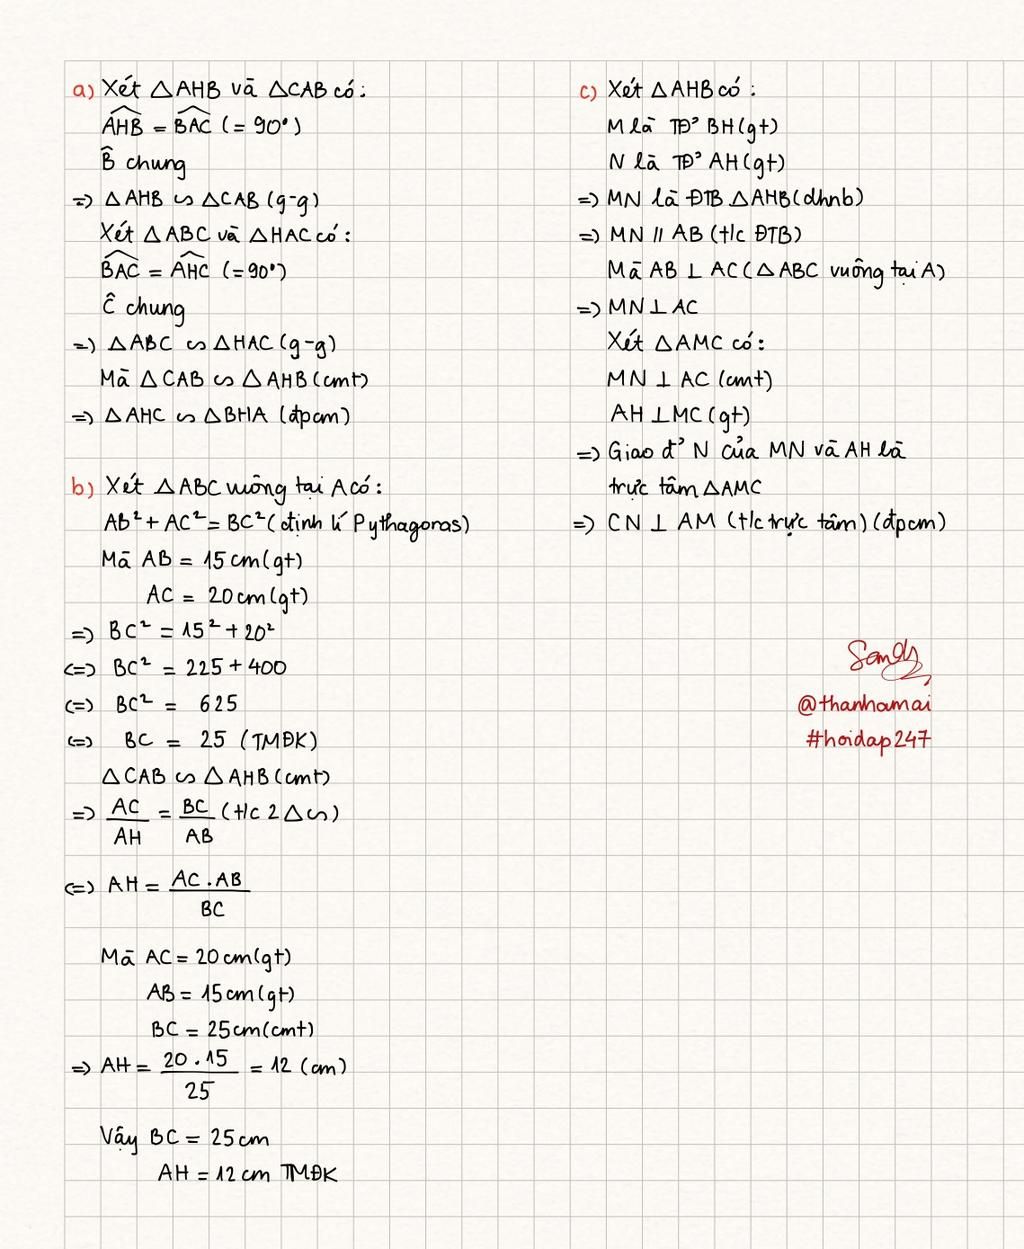 a) Xét △AHB và △CAB có:
AHB = BAC (= 90°)
B̂ chung
=> △AHB ∽ △CAB (g-g)
Xét △ABC và △HAC có:
BAC = AHC (= 90°)
Ĉ chung
=> △ABC ∽ △HAC (g-g)
Mà △CAB ∽ △AHB (cmt)
=> △AHC ∽ △BHA (đpcm)
b) Xét △ABC vuông tại A có:
Ab² + AC² = BC² (định lí Pythagoras)
Mà AB = 15cm (gt)
AC = 20cm (gt)
=> BC² = 15² + 20²
<=> BC² = 225 + 400
<=> BC² = 625
<=> BC = 25 (TMĐK)
△CAB ∽ △AHB (cmt)
=> AC/AH = BC/AB (t/c 2△∽)
<=> AH = AC.AB/BC
Mà AC = 20cm (gt)
AB = 15cm (gt)
BC = 25cm (cmt)
=> AH = 20.15/25 = 12 (cm)
Vậy BC = 25cm
AH = 12cm TMĐK
c) Xét △AHB có:
M là TĐ' BH (gt)
N là TĐ' AH (gt)
=> MN là ĐTB △AHB (dhnb)
=> MN // AB (t/c ĐTB)
Mà AB ⊥ AC (△ABC vuông tại A)
=> MN ⊥ AC
Xét △AMC có:
MN ⊥ AC (cmt)
AH ⊥ MC (gt)
=> Giao đ' N của MN và AH là
trực tâm △AMC
=> CN ⊥ AM (t/c trực tâm) (đpcm)
Sandy
@thanhamai
#hoidap247